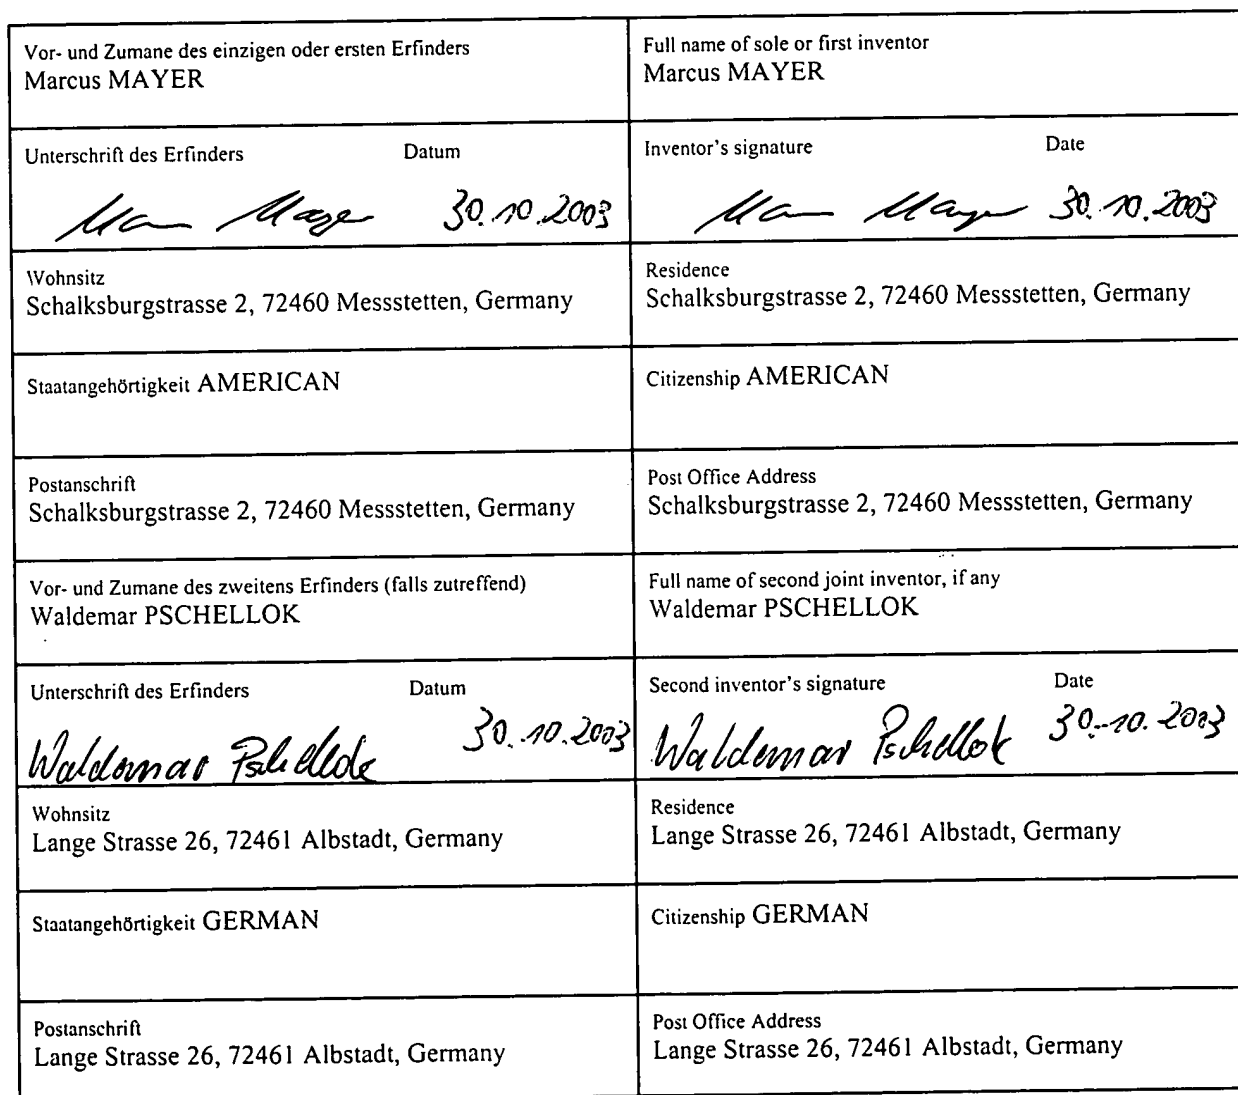 Vor- und Zumane des einzigen oder ersten Erfinders
Marcus MAYER
Full name of sole or first inventor
Marcus MAYER
Unterschrift des Erfinders Datum
Mayer 30.10.2003
Inventor's signature Date
Mayer 30.10.2003
Wohnsitz
Schalksburgstrasse 2, 72460 Messstetten, Germany
Residence
Schalksburgstrasse 2, 72460 Messstetten, Germany
Staatangehörtigkeit AMERICAN
Citizenship AMERICAN
Postanschrift
Schalksburgstrasse 2, 72460 Messstetten, Germany
Post Office Address
Schalksburgstrasse 2, 72460 Messstetten, Germany
Vor- und Zumane des zweitens Erfinders (falls zutreffend)
Waldemar PSCHELLOK
Full name of second joint inventor, if any
Waldemar PSCHELLOK
Unterschrift des Erfinders Datum
Waldemar Pschellok 30.10.2003
Second inventor's signature Date
Waldemar Pschellok 30.10.2003
Wohnsitz
Lange Strasse 26, 72461 Albstadt, Germany
Residence
Lange Strasse 26, 72461 Albstadt, Germany
Staatangehörtigkeit GERMAN
Citizenship GERMAN
Postanschrift
Lange Strasse 26, 72461 Albstadt, Germany
Post Office Address
Lange Strasse 26, 72461 Albstadt, Germany